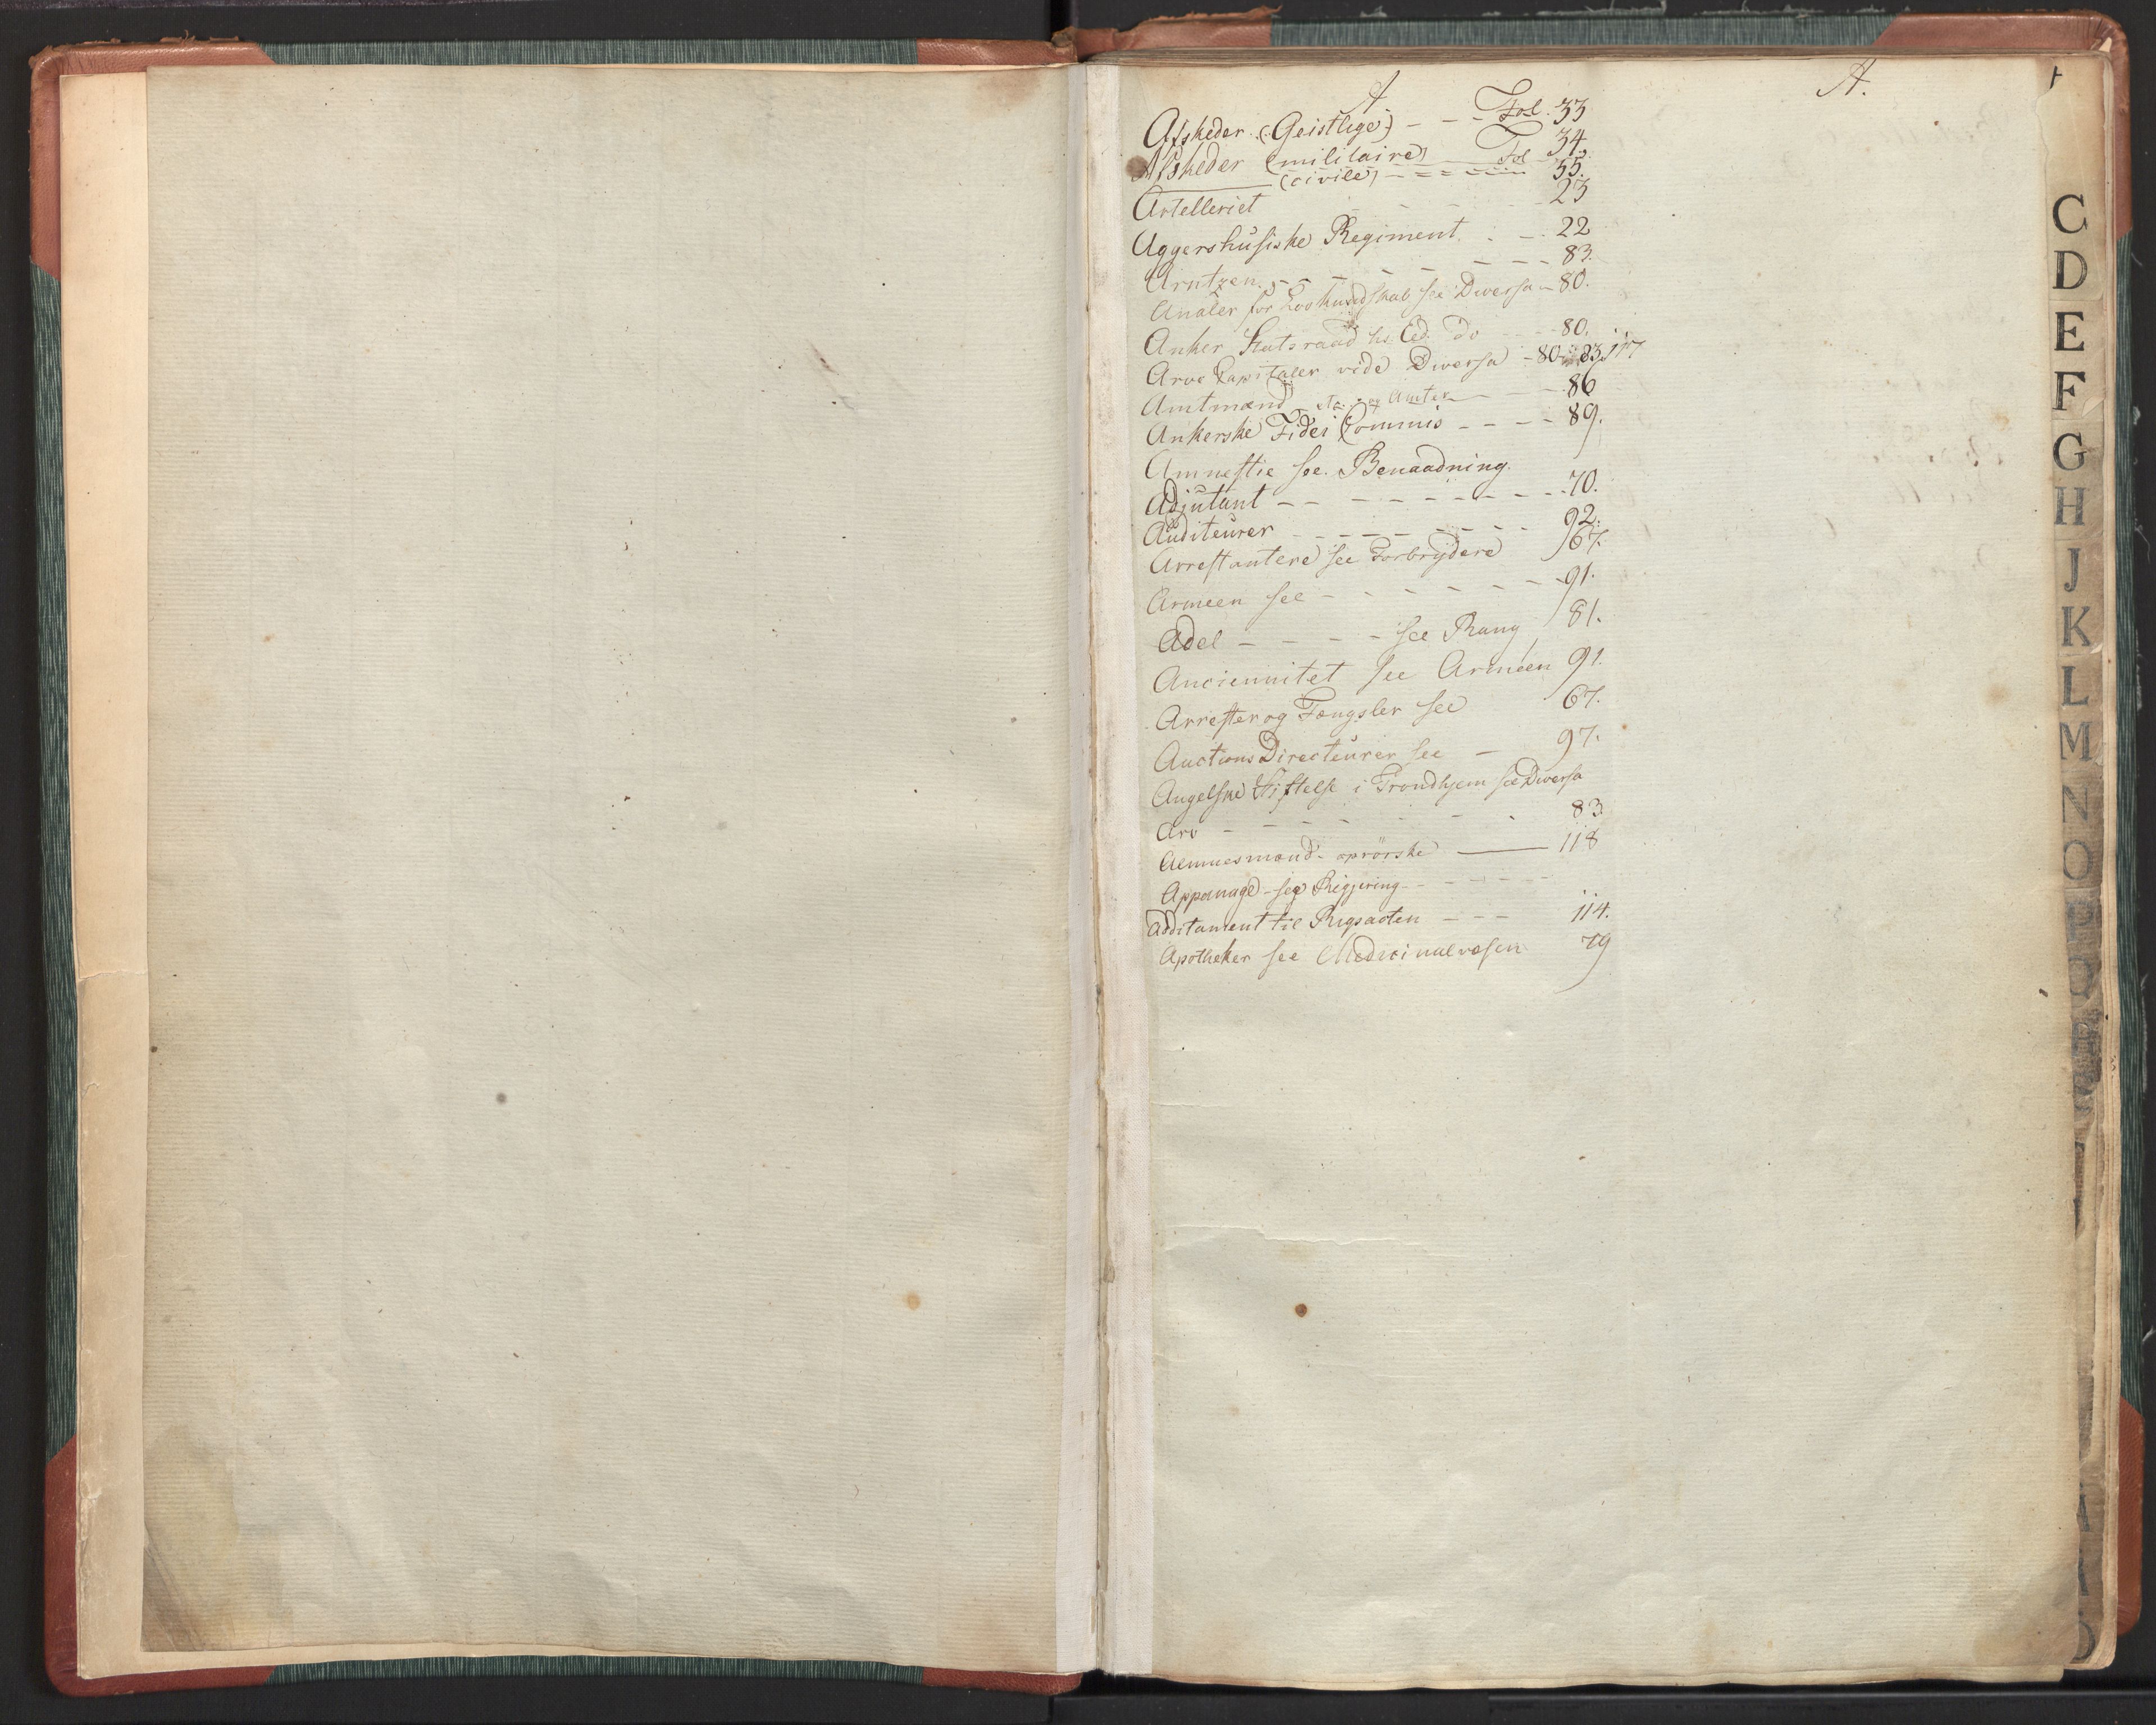 A.
A.
Afskeder (Geistlige) - - - Fol. 33
Afskeder (militaire) Fol 34.
(civile) - - - - - 35.
Artelleriet - - - 23
Aggershusiske Regiment - - 22
Arntzen - - - - - - 83.
Analer for Lovkundskab see Diversa - 80.
Anker Statsraad hs. Ed. do - - - 80.
Arve Capitaler vide Diversa - 80 83. 117
Amtmænd og Amter - 86
Ankerske Fidei Commis - - - - 89.
Amnestie see Benaadning.
Adjutant - - - - - - - - - 70.
Auditeurer - - - - - - - 92.
Arrestantere see Forbrydere 67.
Armeen see - - - - - - - 91.
Adel - - - - see Rang 81.
Anciennitet see Armeen 91.
Arrester og Fængsler see 67.
Auctions Directeurer see - 97.
Angelske Stiftelse i Trondhjem see Diversa
Arv - - - - - - - 83.
Almuesmænd oprørske 118
Appanage - see Regjering - - - - -
Additament til Rigsacten - - - 114.
Apotheker see Medicinalvæsen 79
C
D
E
F
G
H
J
K
L
M
N
O
P
Q
R